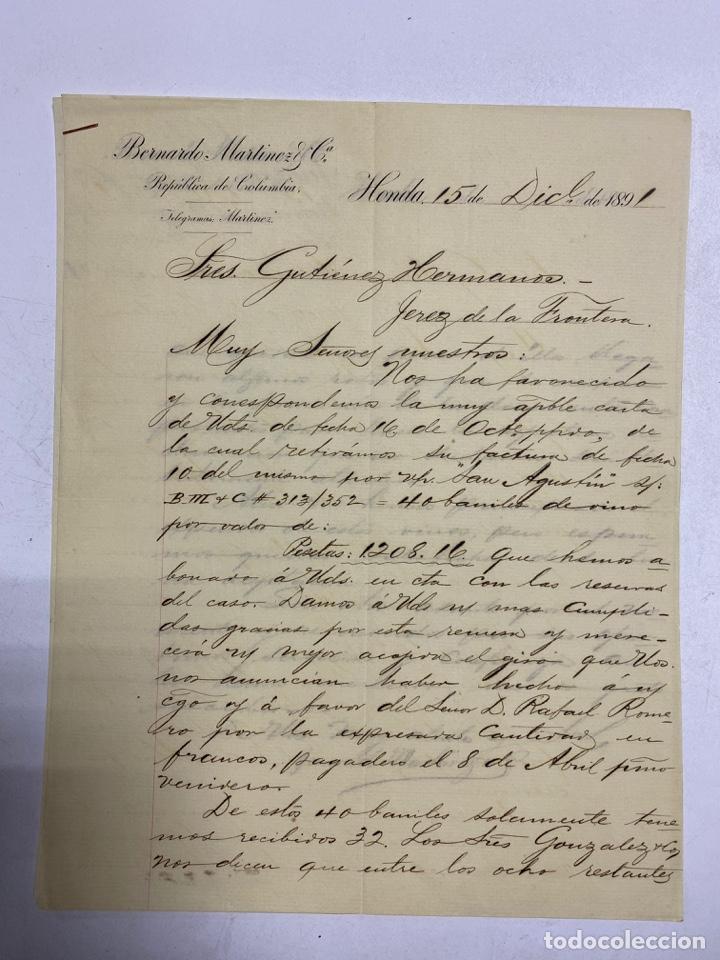 Bernardo Martinez & Cª
República de Columbia.
Telegramas: "Martinez"
Honda, 15 de Dice. de 1891
Sres. Gutiérrez Hermanos.-
Jerez de la Frontera.
Muy Señores nuestros:
Nos ha favorecido
y correspondemos la muy apble carta
de Uds. de fecha 16 de Oct. ppdo, de
la cual retirámos su factura de fecha
10 del mismo por vp. "San Agustin" s/:
B M & C # 313/352 = 40 barriles de vino
por valor de:
Pesetas: 1.208.16. que hemos a
bonado á Uds. en cta con las reservas
del caso. Damos á Uds n/ mas cumpli-
das gracias por esta remesa y mere-
cerá n/ mejor acojida el giro que Uds.
nos anuncian haber hecho á n/
cgo y á favor del Señor D. Rafael Rome-
ro por la expresada cantidad en
francos, pagadero el 8 de Abril pmo
venidero.
De estos 40 barriles solamente tene
mos recibidos 32. Los Sres Gonzalez & Co,
nos dicen que entre los ocho restantes
todocoleccion
todocoleccion.net